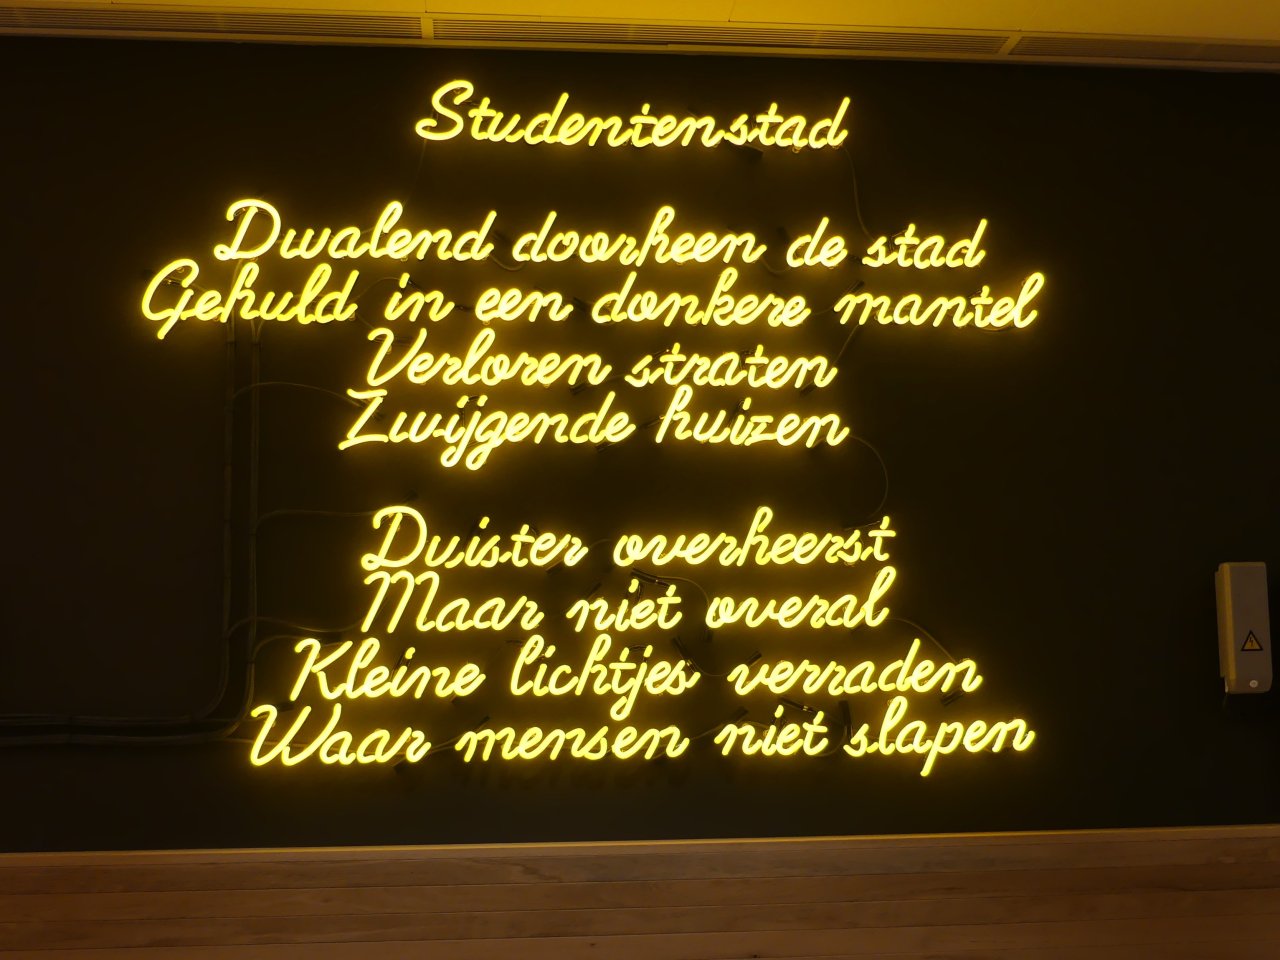 Studentenstad
Dwalend doorheen de stad
Gehuld in een donkere mantel
Verloren straten
Zwijgende huizen
Duister overheerst
Maar niet overal
Kleine lichtjes verraden
Waar mensen niet slapen